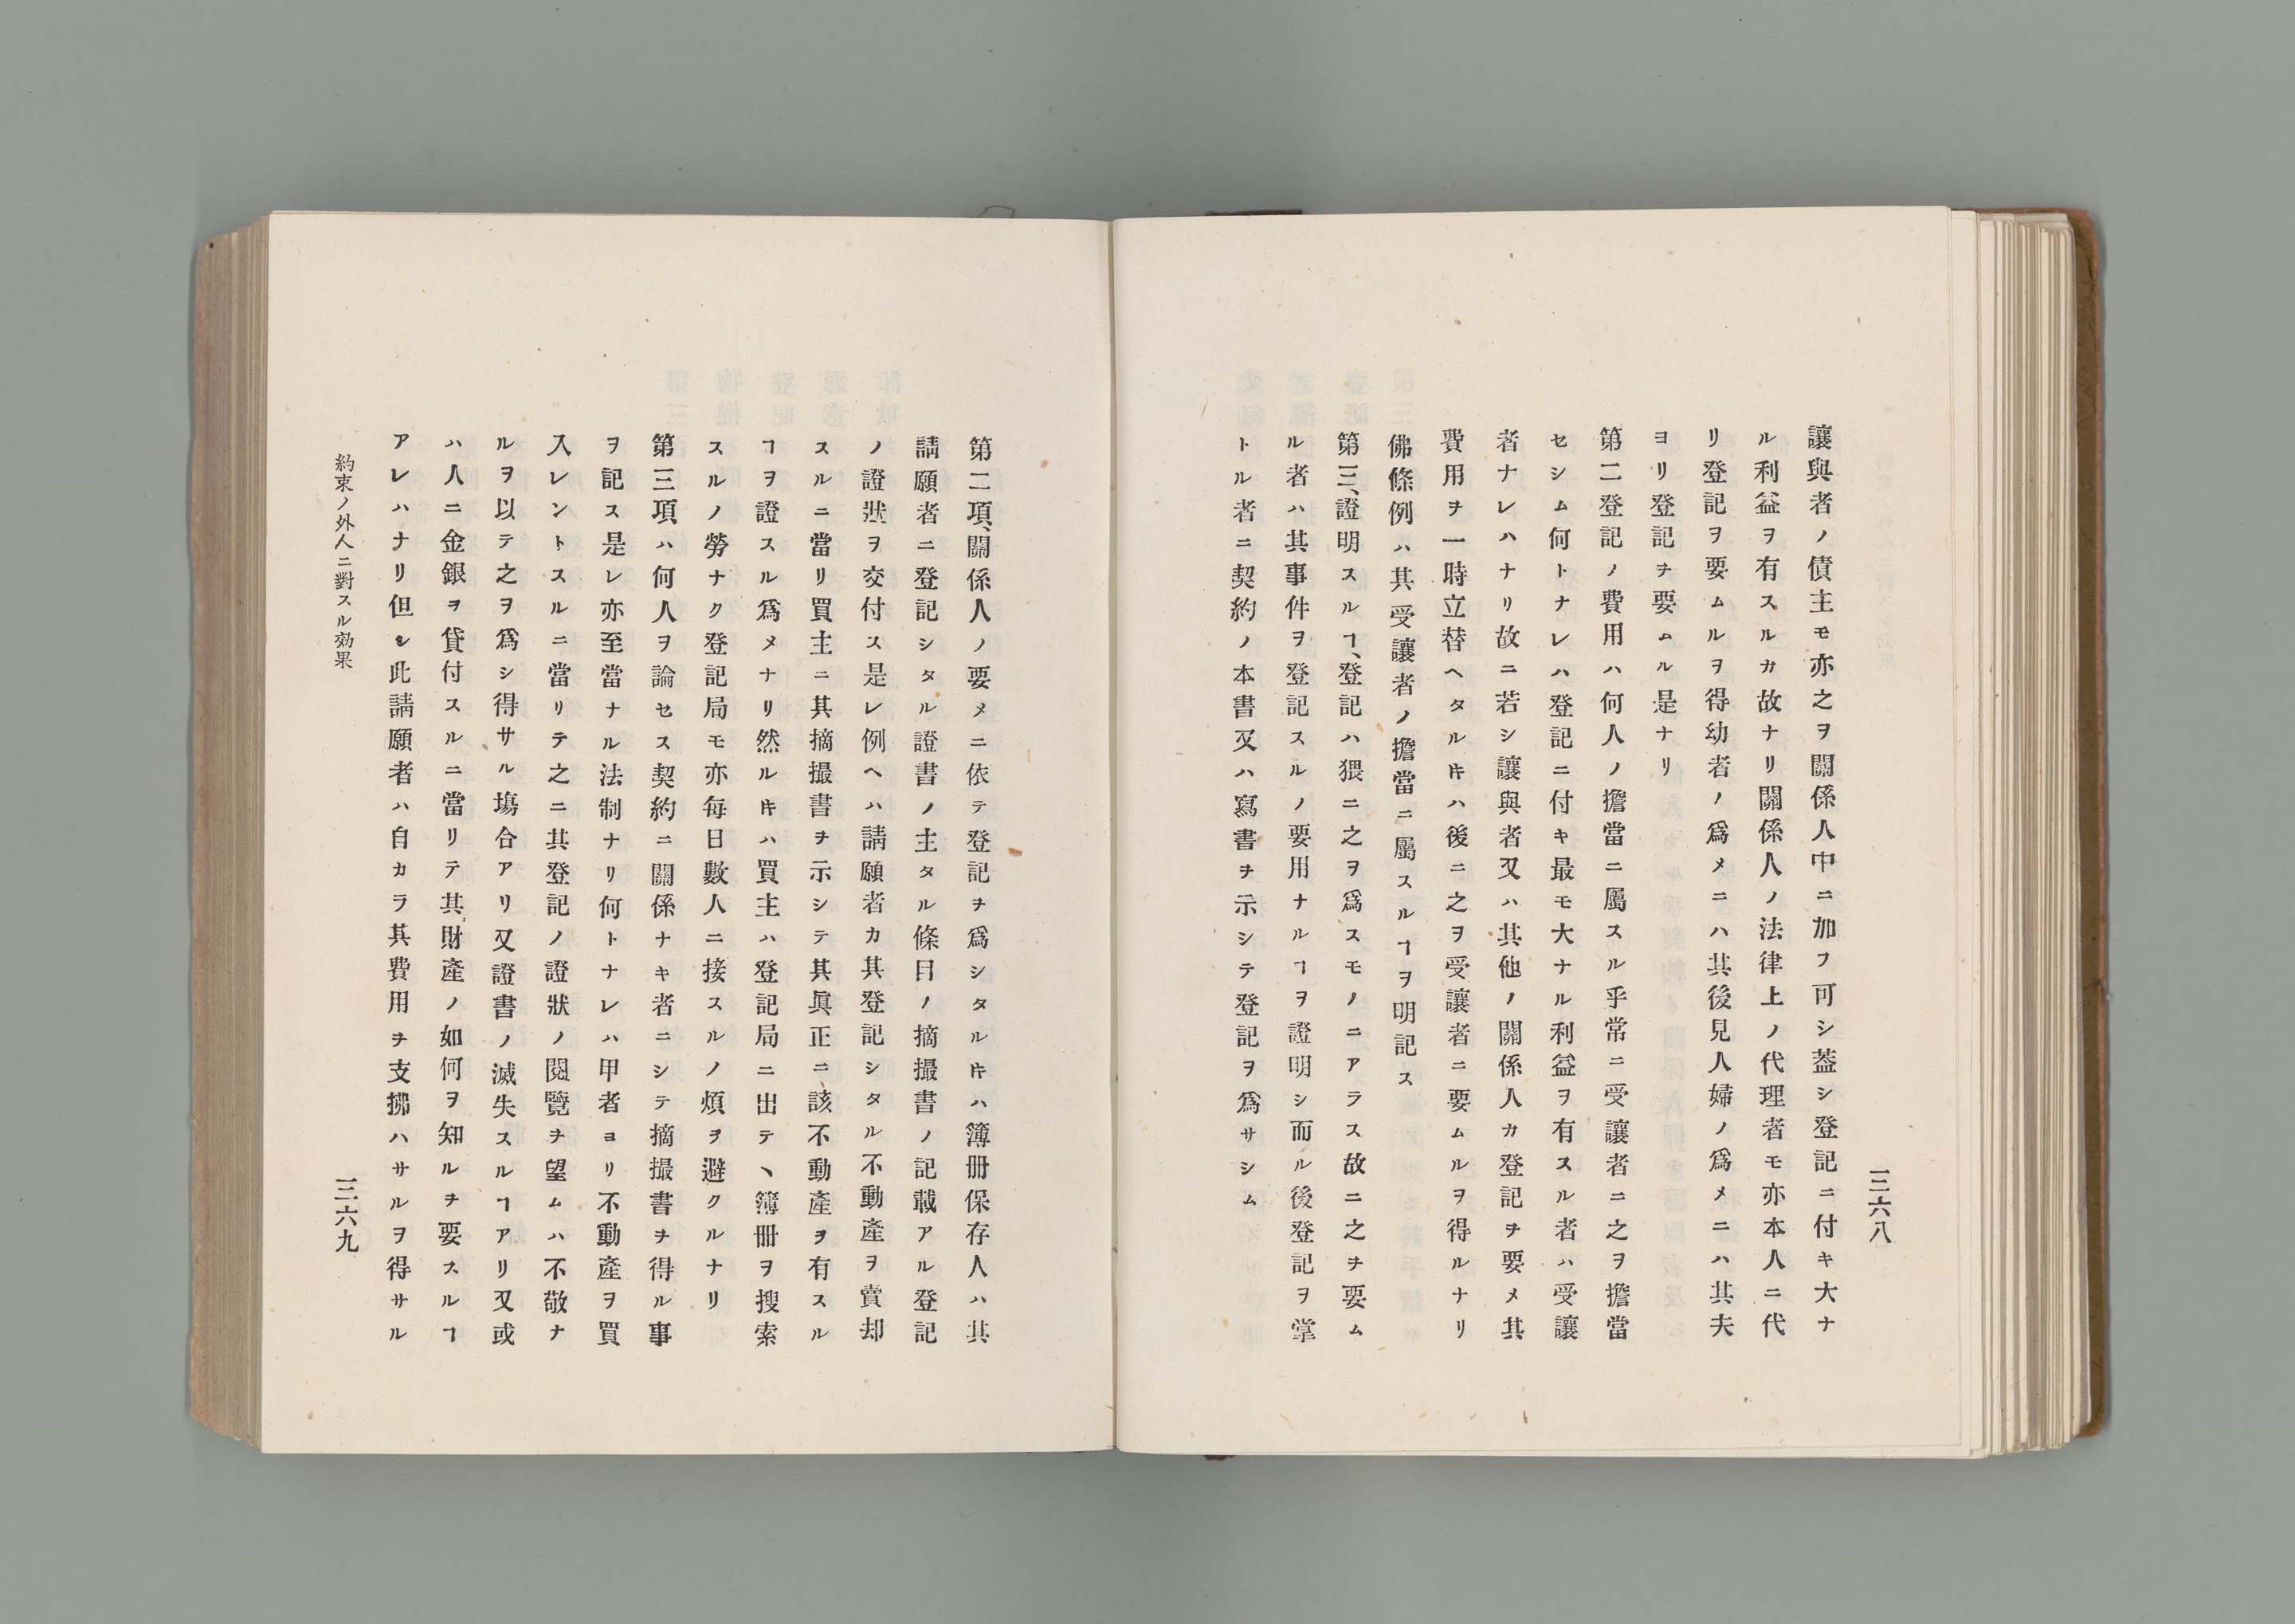 三六八
讓與者ノ債主モ亦之ヲ關係人中ニ加フ可シ蓋シ登記ニ付キ大ナ
ル利益ヲ有スルカ故ナリ關係人ノ法律上ノ代理者モ亦本人ニ代
リ登記ヲ要ムルヲ得幼者ノ爲メニハ其後見人婦ノ爲メニハ其夫
ヨリ登記ヲ要ムル是ナリ
第二登記ノ費用ハ何人ノ擔當ニ屬スル乎常ニ受讓者ニ之ヲ擔當
セシム何トナレハ登記ニ付キ最モ大ナル利益ヲ有スル者ハ受讓
者ナレハナリ故ニ若シ讓與者又ハ其他ノ關係人カ登記ヲ要メ其
費用ヲ一時立替ヘタルキハ後ニ之ヲ受讓者ニ要ムルヲ得ルナリ
佛條例ハ其受讓者ノ擔當ニ屬スルヿヲ明記ス
第三、證明スルヿ、登記ハ猥ニ之ヲ爲スモノニアラス故ニ之ヲ要ム
ル者ハ其事件ヲ登記スルノ要用ナルヿヲ證明シ而ル後登記ヲ掌
トル者ニ契約ノ本書又ハ寫書ヲ示シテ登記ヲ爲サシム
第二項、關係人ノ要メニ依テ登記ヲ爲シタルキハ簿冊保存人ハ其
請願者ニ登記シタル證書ノ主タル條目ノ摘撮書ノ記載アル登記
ノ證狀ヲ交付ス是レ例ヘハ請願者カ其登記シタル不動產ヲ賣却
スルニ當リ買主ニ其摘撮書ヲ示シテ其眞正ニ該不動產ヲ有スル
ヿヲ證スル爲メナリ然ルキハ買主ハ登記局ニ出テヽ簿冊ヲ搜索
スルノ勞ナク登記局モ亦每日數人ニ接スルノ煩ヲ避クルナリ
第三項ハ何人ヲ論セス契約ニ關係ナキ者ニシテ摘撮書ヲ得ル事
ヲ記ス是レ亦至當ナル法制ナリ何トナレハ甲者ヨリ不動產ヲ買
入レントスルニ當リテ之ニ其登記ノ證狀ノ閱覽ヲ望ムハ不敬ナ
ルヲ以テ之ヲ爲シ得サル塲合アリ又證書ノ滅失スルヿアリ又或
ハ人ニ金銀ヲ貸付スルニ當リテ其財產ノ如何ヲ知ルヲ要スルヿ
アレハナリ但シ此請願者ハ自カラ其費用ヲ支拂ハサルヲ得サル
約束ノ外人ニ對スル効果
三六九